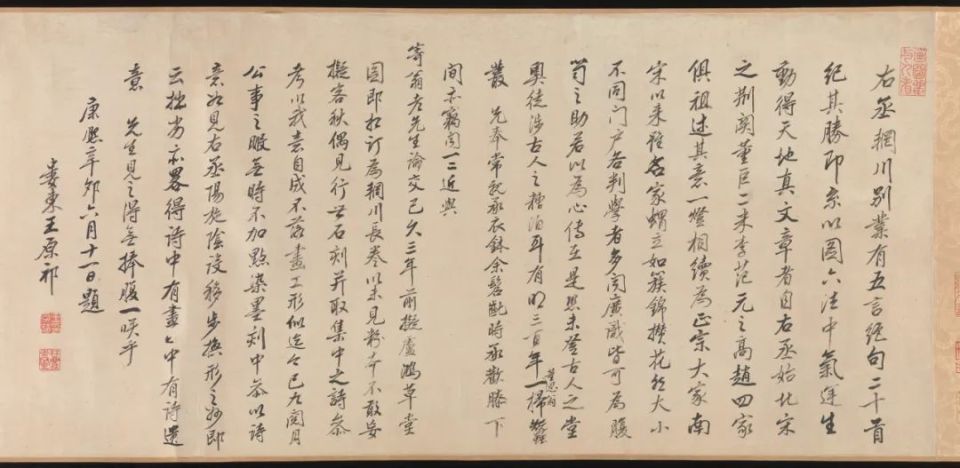 右丞輞川別業有五言絕句二十首
紀其勝即系以圖六法中氣運生
動得天地真文章者自右丞始北宋
之荊關董巨二米李范元之高趙四家
俱祖述其意一燈相續為正宗大家南
宋以來雖名家蝟立如簇錦攢花然大小
不同門户各判學者多聞廣識皆可為腹
笥之助若以為心傳在是恐未登古人之堂
奧徒涉古人之糟泊耳有明三百年董思翁一掃蠶
叢 先奉常親承衣鉢余髫齔時承歡膝下
間亦竊聞一二近與
寄翁老先生論交已久三年前擬盧鴻草堂
圖即相訂為輞川長卷以未見粉本不敢妄
擬客秋偶見行世石刻并取集中之詩參
考以我意自成不落畫工形似迄今已九閱月
公事之暇無時不加點染墨刻中參以詩
意如見右丞陽施陰設移步換形之妙即
云拙劣亦畧得詩中有畫〻中有詩遺
意 先生見之得無捧腹一噱乎
康熙辛卯六月十一日題
婁東王原祁